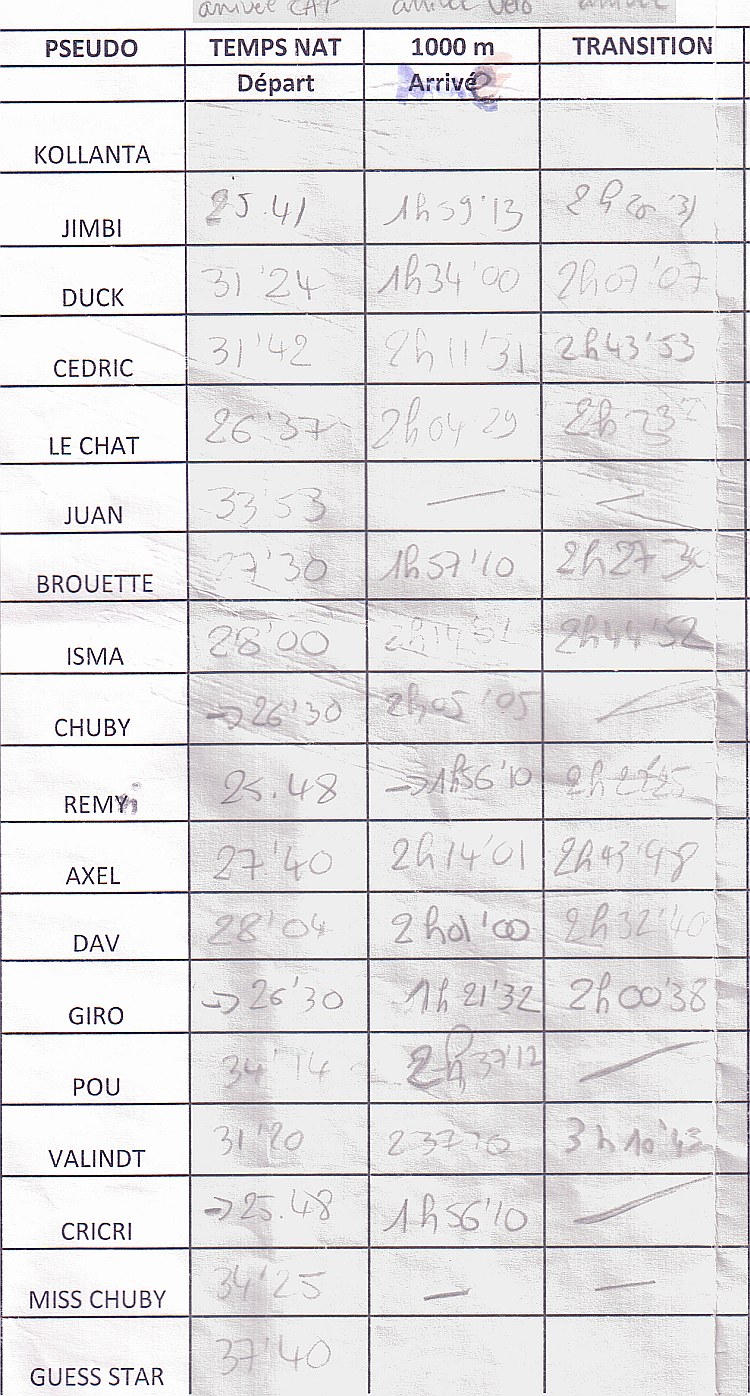 arrivée CAP arrivée Vélo arrivée
PSEUDO TEMPS NAT 1000 m TRANSITION
Départ Arrivé
KOLLANTA
JIMBI 25.41 1h59'13 2h '31
DUCK 31'24 1h34'00 2h07'07
CEDRIC 31'42 2h11'31 2h43'53
LE CHAT 26'37 2h04'29 2h23
JUAN 33'53 — —
BROUETTE 27'30 1h57'10 2h27'30
ISMA 28'00 2h14'51 2h44'52
CHUBY →26'30 2h05'05 —
REMY 25.48 →1h56'10 2h
AXEL 27'40 2h14'01 2h43'48
DAV 28'04 2h01'00 2h32'40
GIRO →26'30 1h21'32 2h00'38
POU 34'14 2h37'12 —
VALINDT 31'20 3h10'43
CRICRI →25.48 1h56'10 —
MISS CHUBY 34'25 — —
GUESS STAR 37'40